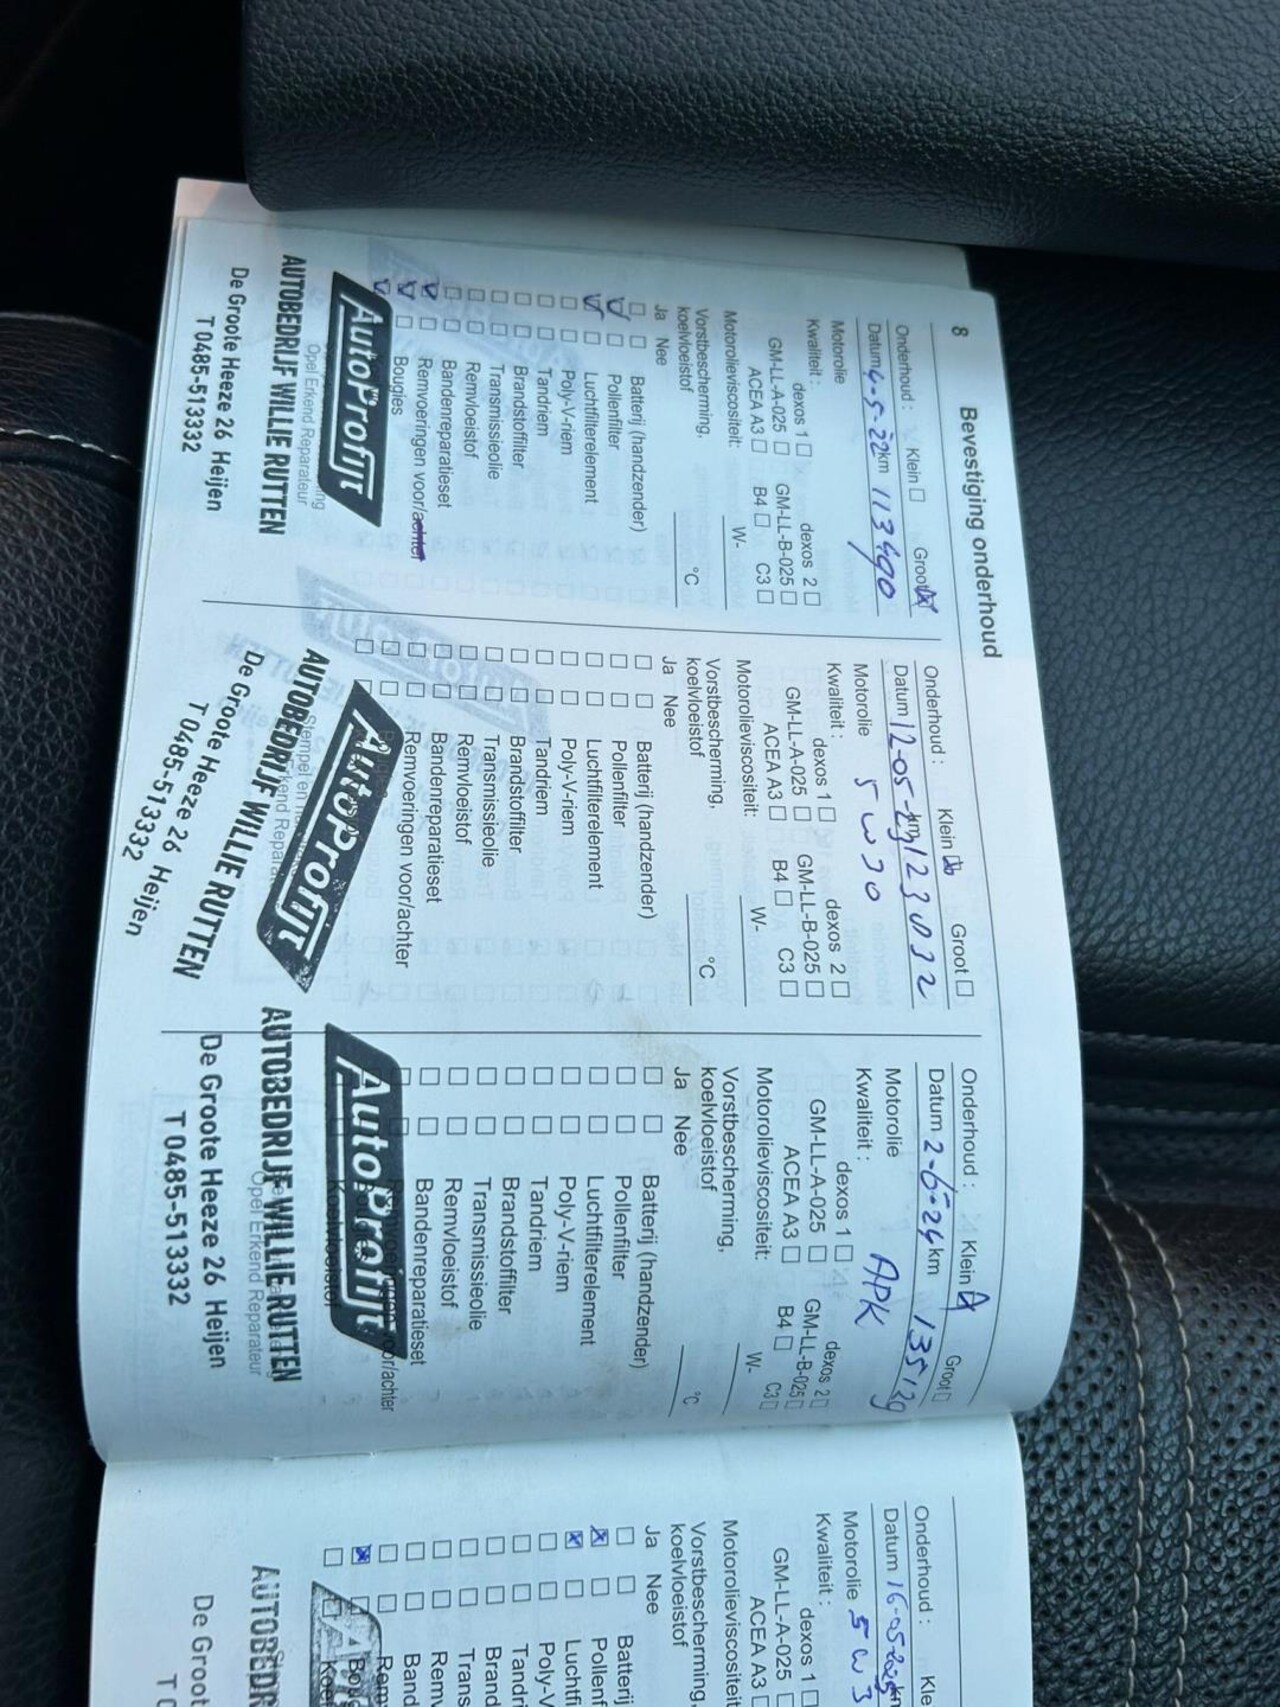 8 Bevestiging onderhoud
Onderhoud : Klein Groot
Datum 4-5-22 km 113490
Motorolie
Kwaliteit : dexos 1 dexos 2
GM-LL-A-025 GM-LL-B-025
ACEA A3 B4 C3
Motorolieviscositeit: W-
Vorstbescherming,
koelvloeistof °C
Ja Nee
Batterij (handzender)
Pollenfilter
Luchtfilterelement
Poly-V-riem
Tandriem
Brandstoffilter
Transmissieolie
Remvloeistof
Bandenreparatieset
Remvoeringen voor/achter
Bougies
AutoProfijt
Opel Erkend Reparateur
AUTOBEDRIJF WILLIE RUTTEN
De Groote Heeze 26 Heijen
T 0485-513332
Onderhoud : Klein Groot
Datum 12-05-23 km 123032
Motorolie 5W30
Kwaliteit : dexos 1 dexos 2
GM-LL-A-025 GM-LL-B-025
ACEA A3 B4 C3
Motorolieviscositeit: W-
Vorstbescherming,
koelvloeistof °C
Ja Nee
Batterij (handzender)
Pollenfilter
Luchtfilterelement
Poly-V-riem
Tandriem
Brandstoffilter
Transmissieolie
Remvloeistof
Bandenreparatieset
Remvoeringen voor/achter
AutoProfijt
AUTOBEDRIJF WILLIE RUTTEN
De Groote Heeze 26 Heijen
T 0485-513332
Onderhoud : Klein Groot
Datum 2-5-24 km 135129
Motorolie APK
Kwaliteit : dexos 1 dexos 2
GM-LL-A-025 GM-LL-B-025
ACEA A3 B4 C3
Motorolieviscositeit: W-
Vorstbescherming,
koelvloeistof °C
Ja Nee
Batterij (handzender)
Pollenfilter
Luchtfilterelement
Poly-V-riem
Tandriem
Brandstoffilter
Transmissieolie
Remvloeistof
Bandenreparatieset
voor/achter
Koelvloeistof
AutoProfijt
Opel Erkend Reparateur
AUTOBEDRIJF WILLIE RUTTEN
De Groote Heeze 26 Heijen
T 0485-513332
Onderhoud : Kle
Datum 16-05-2025 km
Motorolie 5W3
Kwaliteit : dexos 1
GM-LL-A-025
ACEA A3
Motorolieviscositeit
Vorstbescherming,
koelvloeistof
Ja Nee
Batterij
Pollenf
Luchtfi
Poly-V
Tandr
Brand
Trans
Remv
Band
Remv
Bou
Koe
AUTOBEDR
De Groot
T 0